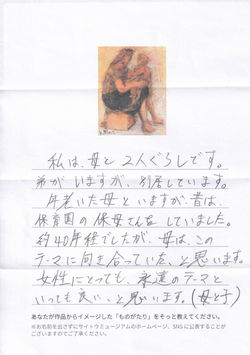 私は、母と2人ぐらしです。
弟がいますが、別居しています。
年老いた母といますが、昔は、
保育園の保母さんをしていました。
約40年経でしたが、母は、この
テーマに向き合っていた、と思います。
女性にとっても、永遠のテーマと
いっても良い、と思います。(母と子)
あなたが作品からイメージした「ものがたり」をそっと教えてください。
※お名前を出さずにサイトウミュージアムのホームページ、SNSに公表することが
ございますのでご了承ください。